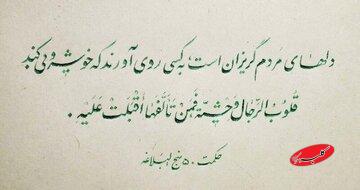 دلهای مردم گریزان است، به کسی روی آورند که خوشرویی کند
قُلُوبُ الرِّجَالِ وَحْشِيَّةٌ فَمَنْ تَأَلَّفَهَا أَقْبَلَتْ عَلَيْهِ.
حکمت ۵۰ نهج البلاغه